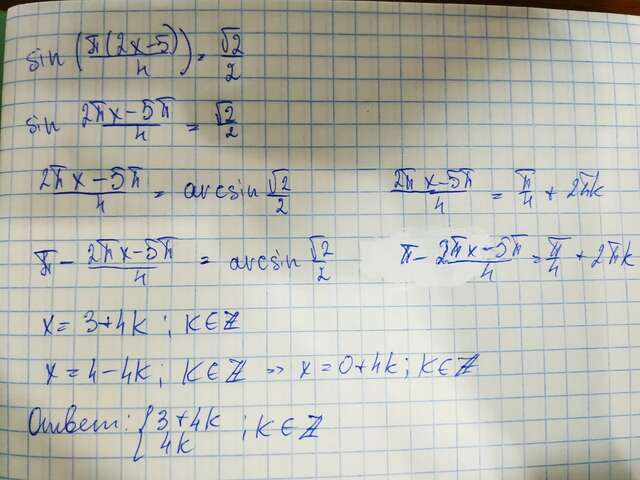 sin (π(2x-5)/4) = √2/2
sin 2πx-5π/4 = √2/2
2πx-5π/4 = arcsin √2/2 2πx-5π/4 = π/4 + 2πk
π - 2πx-5π/4 = arcsin √2/2 π - 2πx-5π/4 = π/4 + 2πk
x = 3+4k ; k∈ℤ
x = 4-4k ; k∈ℤ => x = 0+4k ; k∈ℤ
Ответ: { 3+4k
4k ; k∈ℤ